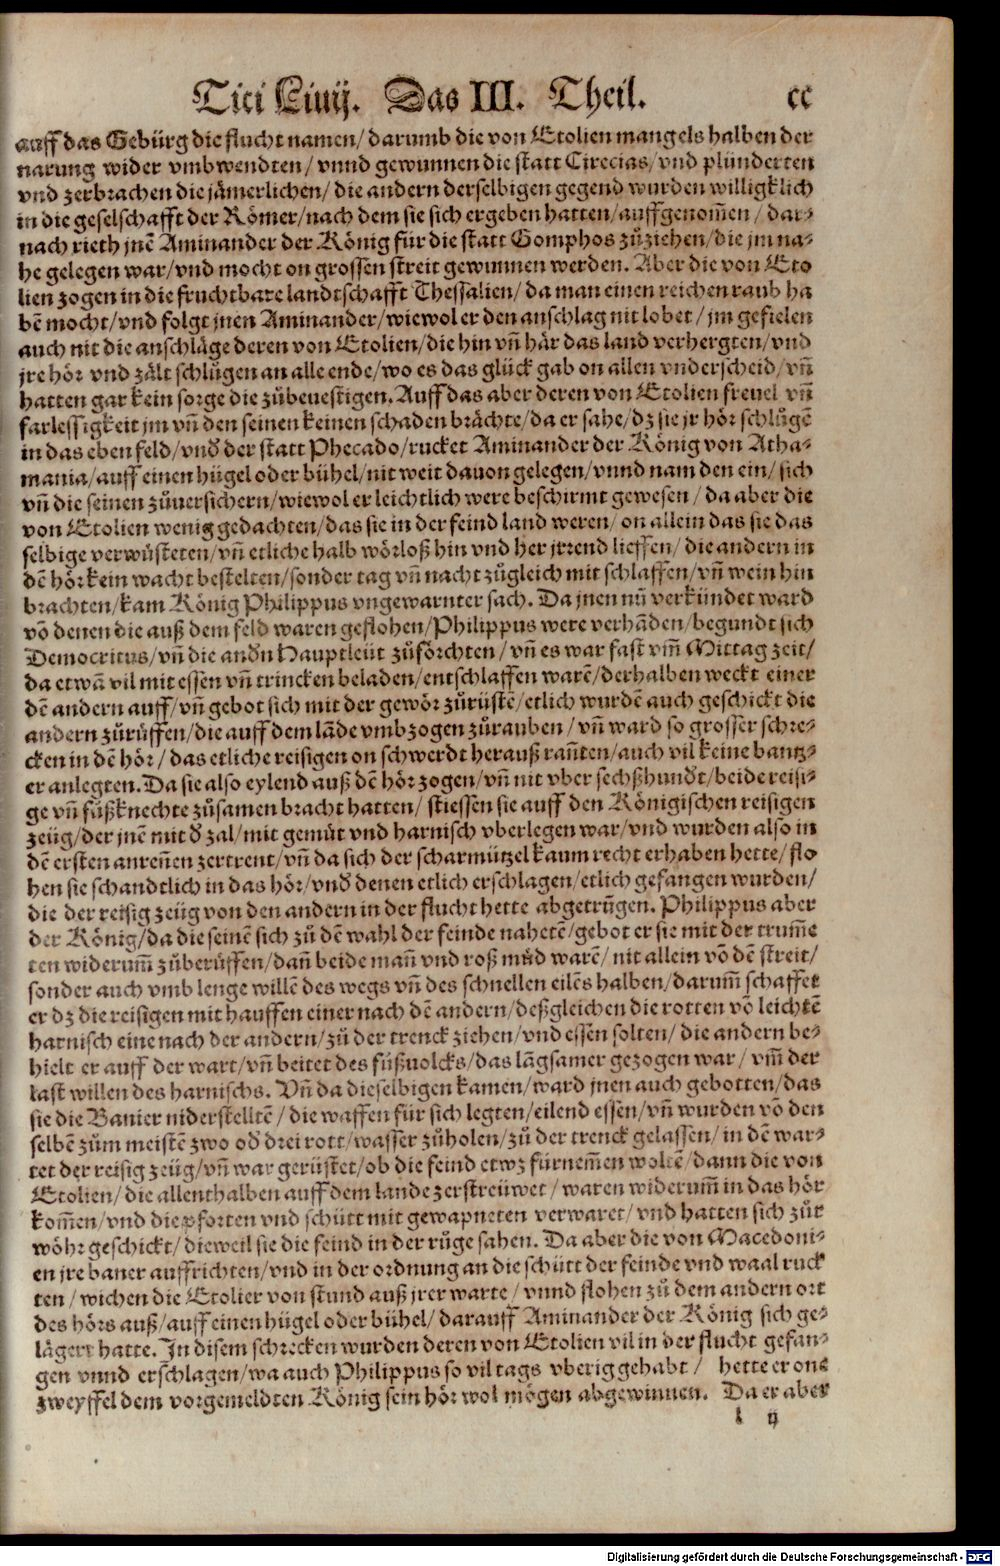 Titi Liuij. Das III. Theil. cc
auff das Gebürg die flucht namen/ darumb die von Etolien mangels halben der
narung wider vmbwendten/ vnnd gewunnen die statt Cirecias/ vnd plünderten
vnd zerbrachen die jämerlichen/ die andern derselbigen gegend wurden willigklich
in die geselschafft der Römer/ nach dem sie sich ergeben hatten/ auffgenom̃en/ dar-
nach rieth jnẽ Aminander der König für die statt Gomphos zůziehen/ die jm na-
he gelegen war/ vnd mocht on grossen streit gewunnen werden. Aber die von Eto
lien zogen in die fruchtbare landtschafft Thessalien/ da man einen reichen raub ha
bẽ mocht/ vnd folgt jnen Aminander/ wiewol er den anschlag nit lobet/ jm gefielen
auch nit die anschläge deren von Etolien/ die hin vñ här das land verhergten/ vnd
jre hör vnd zält schlůgen an alle ende/ wo es das glück gab on allen vnderscheid/ vñ
hatten gar kein sorge die zůbeuestigen. Auff das aber deren von Etolien freuel vñ
farlessigkeit jm vñ den seinen keinen schaden brächte/ da er sahe/ dz sie jr hör schlůgẽ
in das eben feld/ vnd̕ der statt Phecado/ rucket Aminander der König von Atha-
mania/ auff einen hügel oder bühel/ nit weit dauon gelegen/ vnnd nam den ein/ sich
vñ die seinen zůuersichern/ wiewol er leichtlich were beschirmt gewesen/ da aber die
von Etolien wenig gedachten/ das sie in der feind land weren/ on allein das sie das
selbige verwüsteten/ vñ etliche halb wörloß hin vnd her jrrend lieffen/ die andern in
dẽ hör kein wacht bestelten/ sonder tag vñ nacht zůgleich mit schlaffen/ vñ wein hin
brachten/ kam König Philippus vngewarnter sach. Da jnen nů verkündet ward
võ denen die auß dem feld waren geflohen/ Philippus were verhãden/ begundt sich
Democritus/ vñ die and̕n Hauptleüt zůförchten/ vñ es war fast vm̃ Mittag zeit/
da etwã vil mit essen vñ trincken beladen/ entschlaffen warẽ/ derhalben weckt einer
dẽ andern auff/ vñ gebot sich mit der gewör zůrüstẽ/ etlich wurdẽ auch geschickt die
andern zůrůffen/ die auff dem lãde vmbzogen zůrauben/ vñ ward so grosser schre-
cken in dẽ hör/ das etliche reisigen on schwerdt herauß rañten/ auch vil keine bantz-
er anlegten. Da sie also eylend auß dẽ hör zogen/ vñ nit vber sechßhund̕t/ beide reisi-
ge vñ fůßknechte zůsamen bracht hatten/ stiessen sie auff den Königischen reisigen
zeüg/ der jnẽ mit d̕ zal/ mit gemůt vnd harnisch vberlegen war/ vnd wurden also in
dẽ ersten anreñen zertrent/ vñ da sich der scharmützel kaum recht erhaben hette/ flo
hen sie schandtlich in das hör/ vnd̕ denen etlich erschlagen/ etlich gefangen wurden/
die der reisig zeüg von den andern in der flucht hette abgetrũgen. Philippus aber
der König/ da die seinẽ sich zů dẽ wahl der feinde nahetẽ/ gebot er sie mit der trum̃e
ten widerum̃ zůberůffen/ dañ beide mañ vnd roß můd warẽ/ nit allein võ dẽ streit/
sonder auch vmb lenge willẽ des wegs vñ des schnellen eilẽs halben/ darum̃ schaffet
er dz die reisigen mit hauffen einer nach dẽ andern/ deßgleichen die rotten võ leichtẽ
harnisch eine nach der andern/ zů der trenck ziehen/ vnd essen solten/ die andern be-
hielt er auff der wart/ vñ beitet des fůßuolcks/ das lãgsamer gezogen war/ vm̃ der
last willen des harnischs. Vñ da dieselbigen kamen/ ward jnen auch gebotten/ das
sie die Banier niderstelltẽ/ die waffen für sich legten/ eilend essen/ vñ wurden võ den
selbẽ zům meistẽ zwo od̕ drei rott/ wasser zůholen/ zů der trenck gelassen/ in dẽ war-
tet der reisig zeüg/ vñ war gerüstet/ ob die feind etwz fürnem̃en woltẽ/ dann die von
Etolien/ die allenthalben auff dem lande zerstreüwet/ waren widerum̃ in das hör
kom̃en/ vnd die pforten vnd schütt mit gewapneten verwaret/ vnd hatten sich zůr
wöhr geschickt/ dieweil sie die feind in der růge sahen. Da aber die von Macedoni-
en jre baner auffrichten/ vnd in der ordnung an die schütt der feinde vnd waal ruck
ten/ wichen die Etolier von stund auß jrer warte/ vnnd flohen zů dem andern ort
des hörs auß/ auff einen hügel oder bühel/ darauff Aminander der König sich ge-
lägert hatte. In disem schrecken wurden deren von Etolien vil in der flucht gefan-
gen vnnd erschlagen/ wa auch Philippus so vil tags vberig gehabt/ hette er one
zweyffel dem vorgemeldten König sein hör wol mögen abgewinnen. Da er aber
l ij
Digitalisierung gefördert durch die Deutsche Forschungsgemeinschaft - DFG